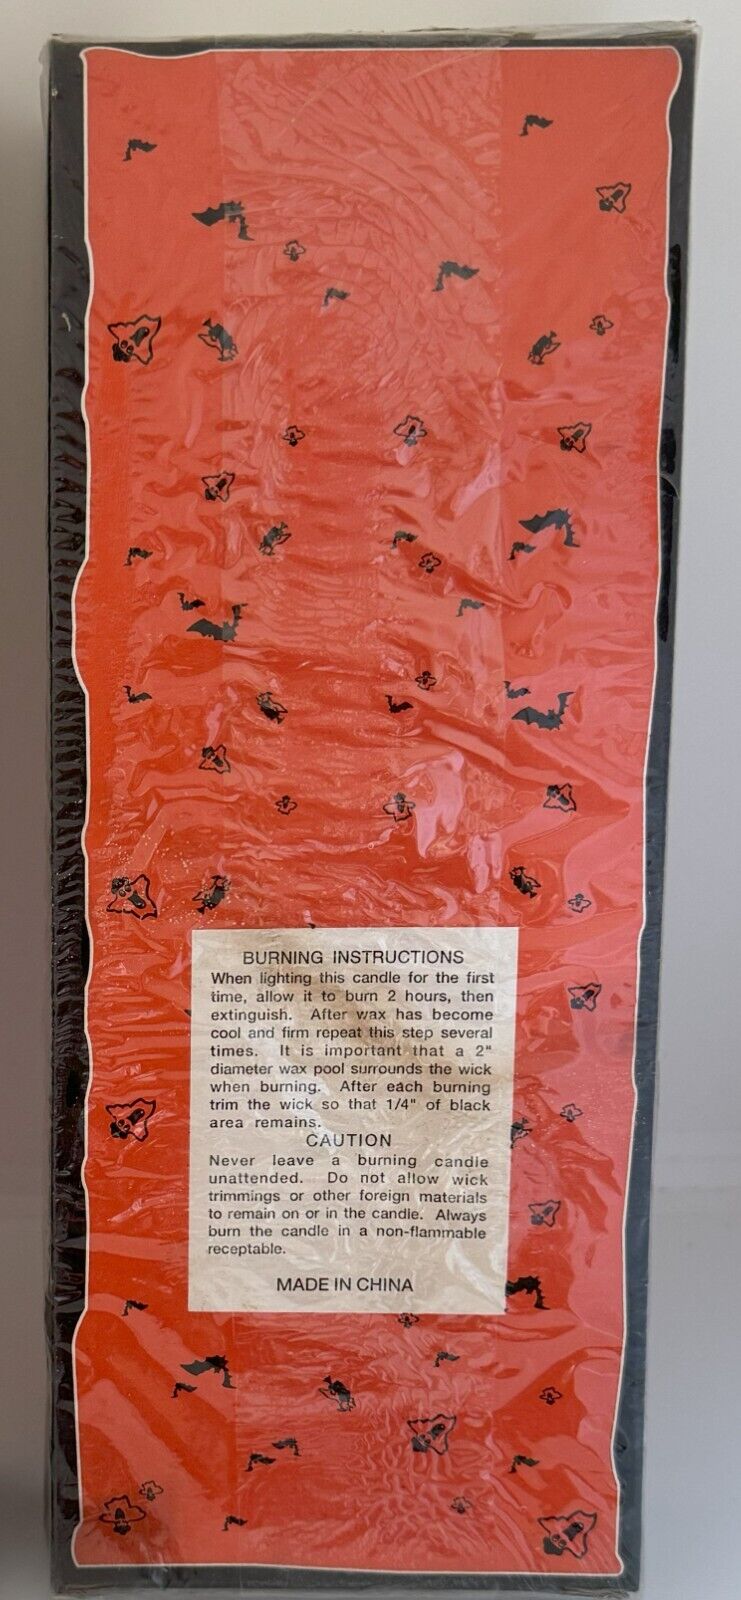 BURNING INSTRUCTIONS
When lighting this candle for the first
time, allow it to burn 2 hours, then
extinguish. After wax has become
cool and firm repeat this step several
times. It is important that a 2"
diameter wax pool surrounds the wick
when burning. After each burning
trim the wick so that 1/4" of black
area remains.
CAUTION
Never leave a burning candle
unattended. Do not allow wick
trimmings or other foreign materials
to remain on or in the candle. Always
burn the candle in a non-flammable
receptable.
MADE IN CHINA